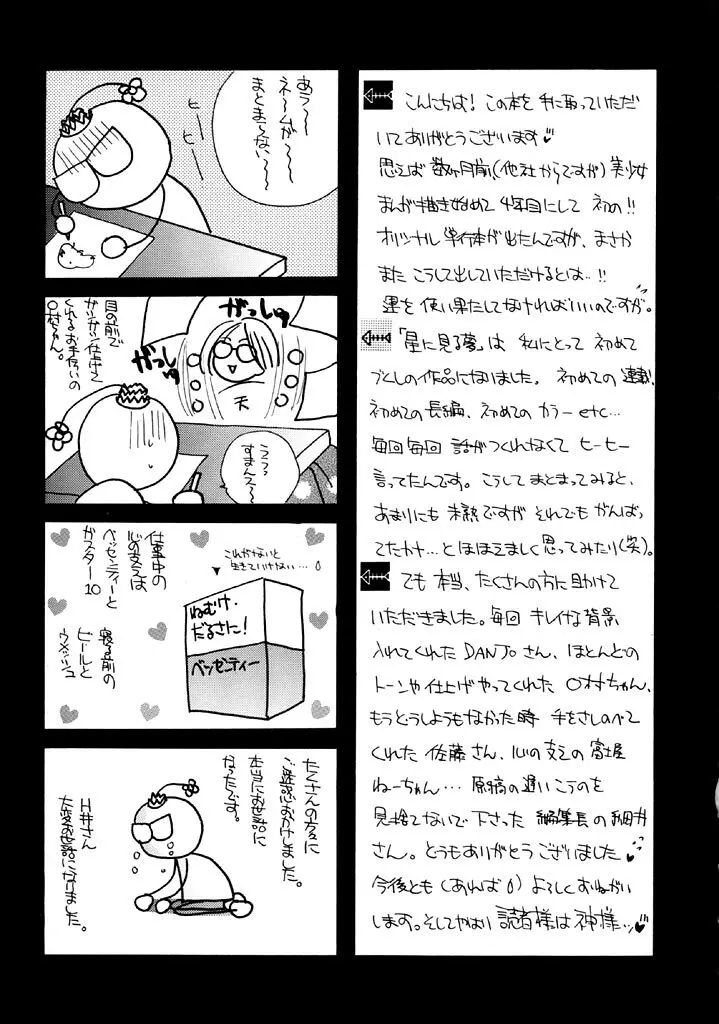 こんにちは！この本を手に取っていただ
いてありがとうございます♥
思えば数ヶ月前、(他社からですが)美少女
まんが描き始めて4年目にして初の!!
オリジナル単行本が出たんですが、まさか
またこうして出していただけるとは…!!
運を使い果たしてなければいいのですが。
「星に見る夢」は私にとって初めて
づくしの作品になりました。初めての連載、
初めての長編、初めてのカラーetc…
毎回毎回話がつくれなくてヒーヒー
言ってたんです。こうしてまとまってみると、
あまりにも未熟ですがそれでもがんばっ
てたわナ…とほほえましく思ってみたり(笑)。
でも本当、たくさんの方に助けて
いただきました。毎回キレイな背景
入れてくれたDANJOさん、ほとんどの
トーンや仕上げやってくれた〇村ちゃん、
もうどうしようもなかった時手をさしのべて
くれた佐藤さん、心の支えの富士屋
ねーちゃん…原稿の遅いこうのを
見捨てないで下さった編集長の細井
さん。どうもありがとうございました♥
今後とも(あれば)よろしくおねがい
します。そしてやはり読者様は神様…♥
あう〜〜
ネームが〜〜
まとまらない〜〜
ヒー
ヒー
目の前で
ガシガシ仕上げて
くれるお手伝いの
〇村ちゃん。
がっしゅ
がっしゅ
天
ううっ
すまんえ〜
仕事中の
心の支えは
ベッセンティーと
ガスター10
これがないと
生きていけない…
ねむけ・
だるさに！
ベッセンティー
寝る前の
ビールと
ウメッシュ
たくさんの方々に
ご迷惑おかけしました。
本当にお世話に
なったです。
H井さん
大変お世話になりました。